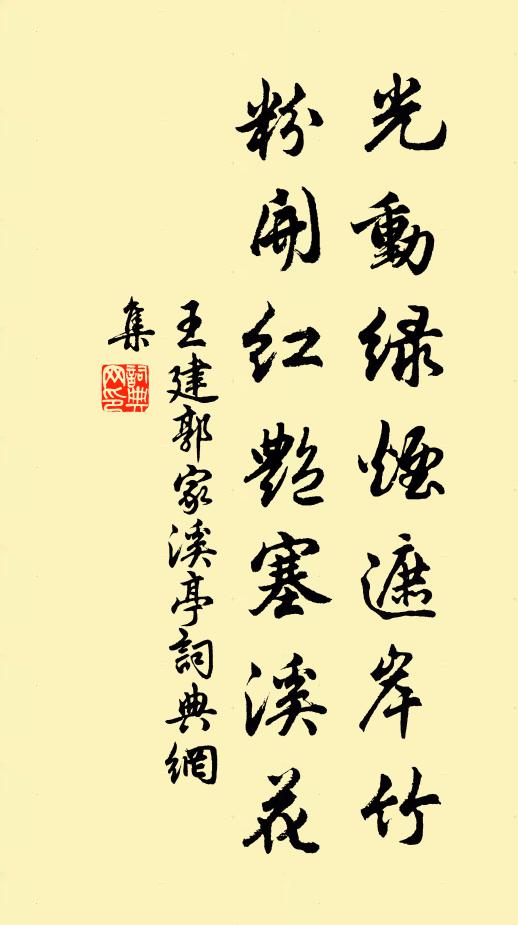 光動綠煙遮岸竹
粉開紅艷塞溪花
王建郭家溪亭詞典網
集
詞典網印